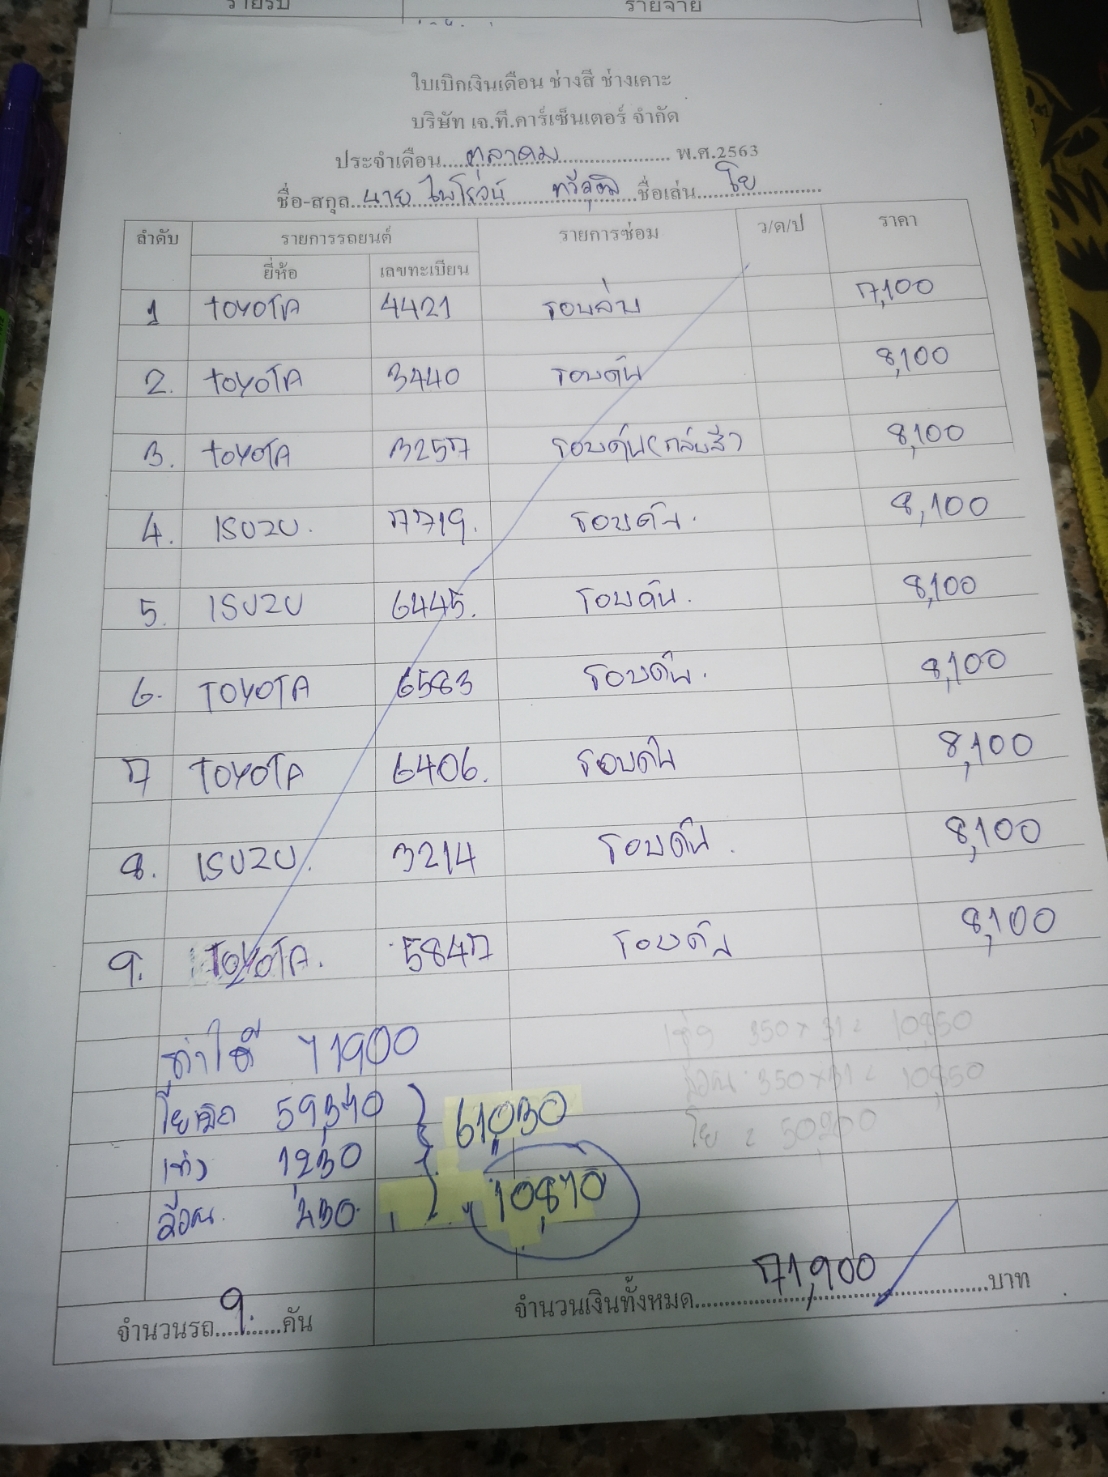 รายรับ รายจ่าย
ใบเบิกเงินเดือน ช่างสี ช่างเคาะ
บริษัท เจ.ที.คาร์เซ็นเตอร์ จำกัด
ประจำเดือน....ตุลาคม.... พ.ศ.2563
ชื่อ-สกุล..นาย ไพโรจน์ ....ชื่อเล่น....โย....
ลำดับ รายการรถยนต์ รายการซ่อม ว/ด/ป ราคา
ยี่ห้อ เลขทะเบียน
1 TOYOTA 4421 รอบคัน 7,100
2. TOYOTA 3440 รอบคัน 8,100
3. TOYOTA 3257 รอบคัน(กลับสี) 8,100
4. ISUZU. 7719. รอบคัน. 8,100
5. ISUZU 6445. รอบคัน. 8,100
6. TOYOTA 6583 รอบคัน. 8,100
7 TOYOTA 6406. รอบคัน 8,100
8. ISUZU. 3214 รอบคัน. 8,100
9. TOYOTA. 5847 รอบคัน 8,100
ทำได้ 71900
350 x 31 = 10850
350 x 31 = 10850
โย =
โยเบิก 61,030
1,230
450. 10,870
จำนวนรถ....9.....คัน จำนวนเงินทั้งหมด....71,900....บาท